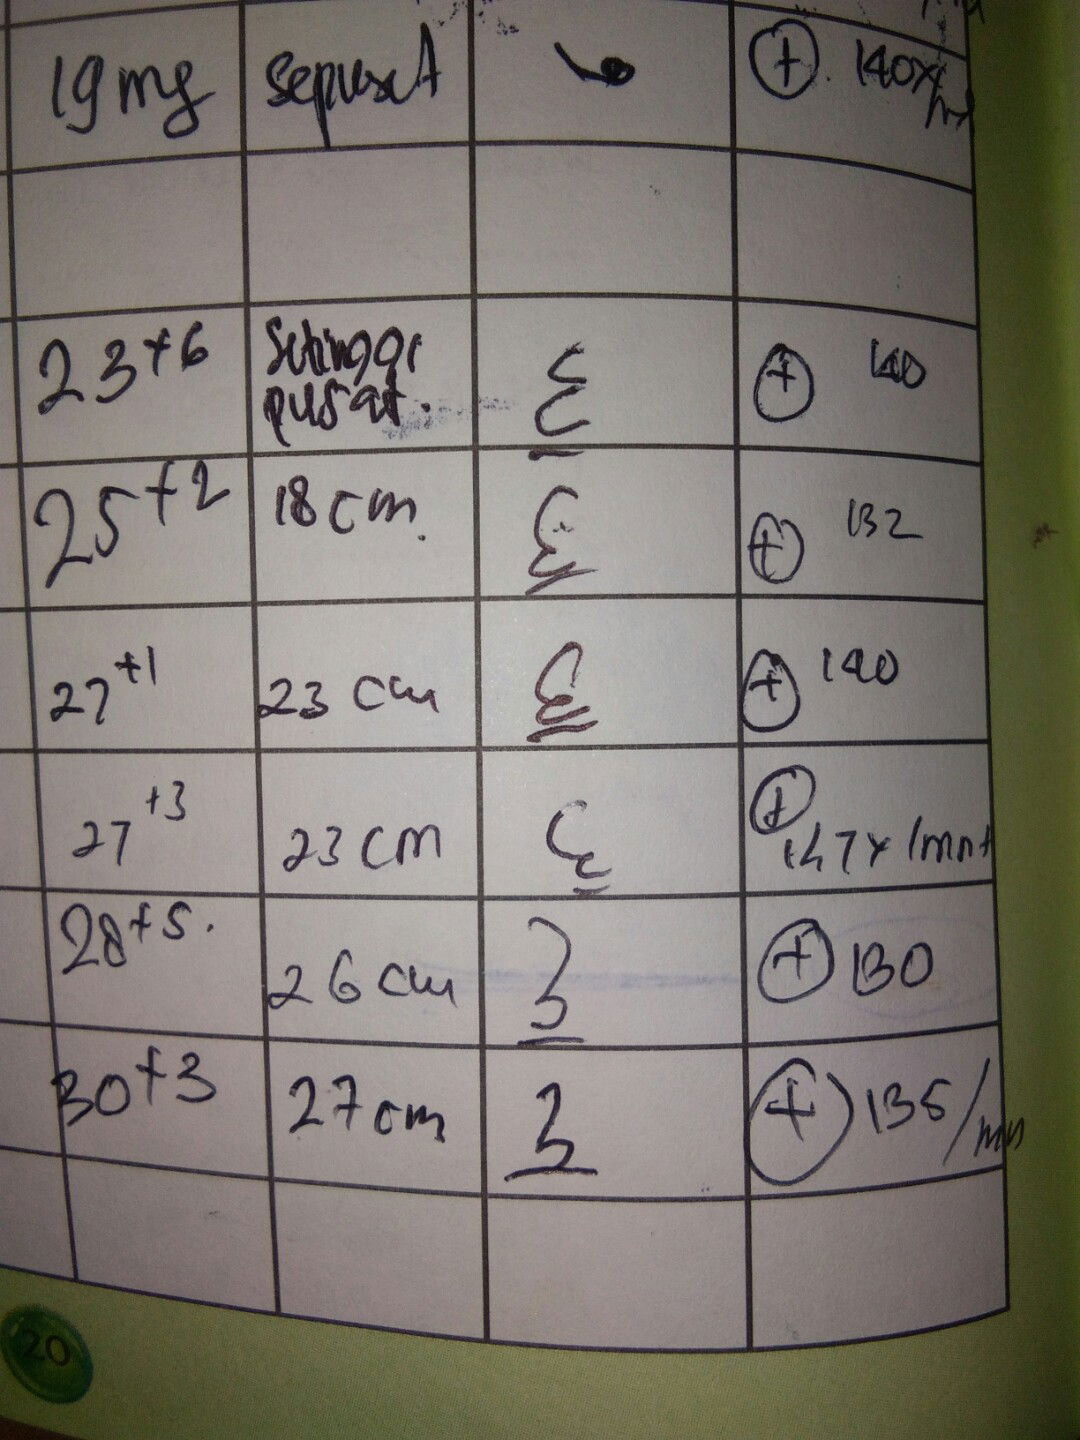 19 mg sepusat ⊕ 140x/
23+6 Setinggi pusat. ⊕ 140
25+2 18 cm. ⊕ 132
27+1 23 cm ⊕ 140
27+3 23 cm ⊕ 147x/mnt
28+5. 26 cm ⊕ 130
30+3 27 cm ⊕ 135/mn
20